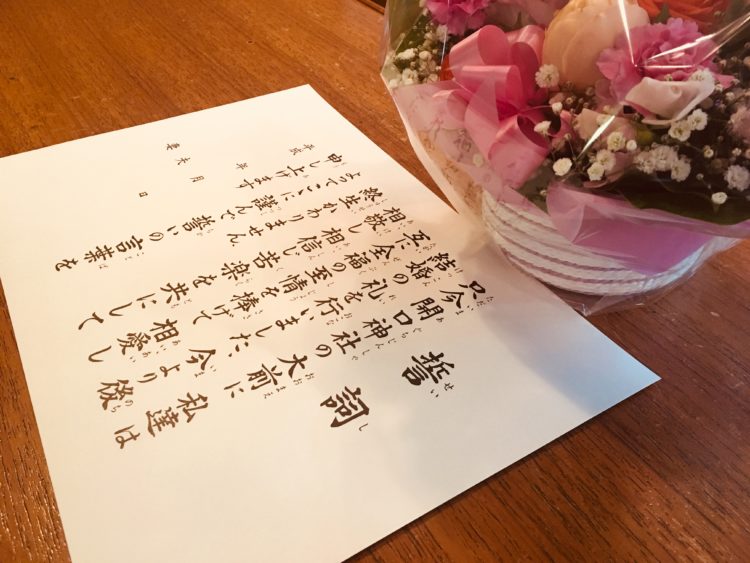 誓詞
只今開口神社の大前に私達は
結婚の礼を行いました 今より後
互に全福の至情を捧げて相愛し
相敬し相信じ苦楽を共にして
終生かわりません
よってここに謹んで誓いの言葉を
申し上げます
平成 年 月 日
夫
妻